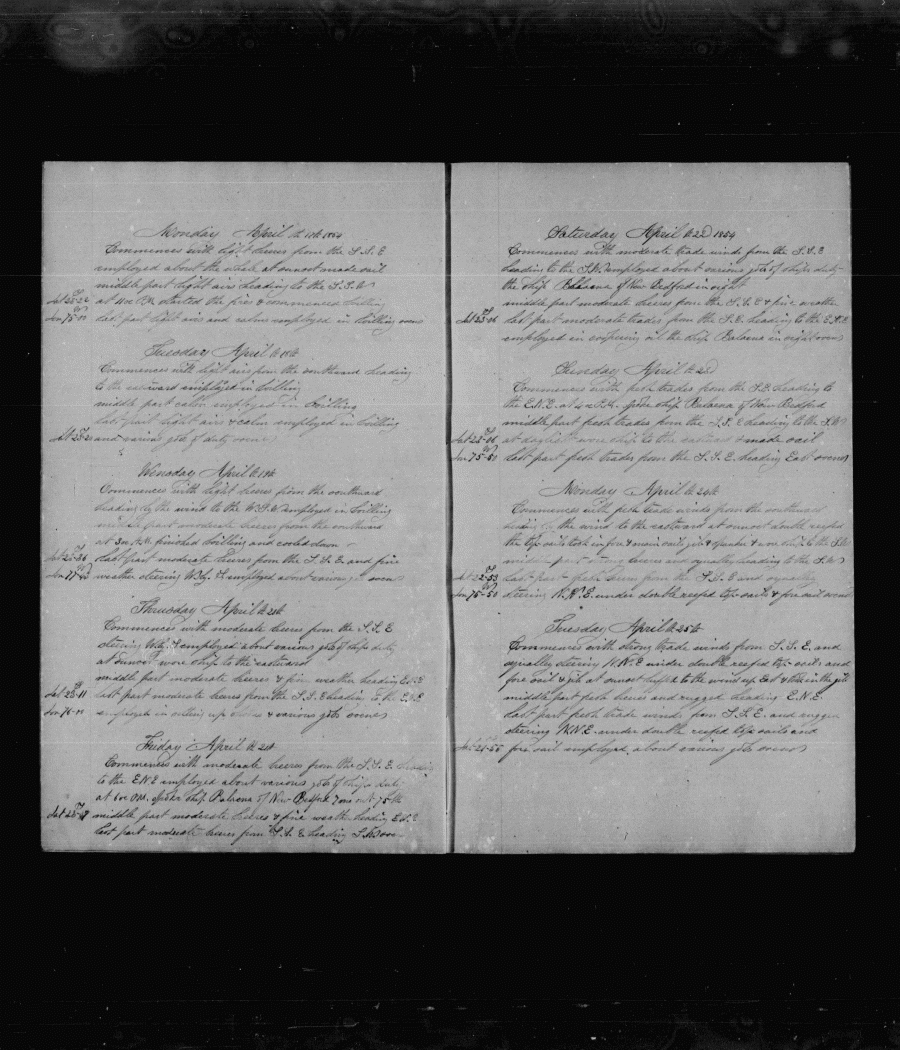 Monday April th 17th 1854
Commences with light breses from the S.S.E
employed about the whale at sunset made sail
middle part light airs heading to the S.S.W
Lat 23-22 at 4 o P.M. started the fires & commenced boiling
Lon 75- last part light airs and calms employed in boiling
Tuesday April th 18th
Commences with light airs from the southward heading
to the eastward employed in boiling
middle part calm employed in boiling
last part light airs & calm employed in boiling
and various jobs of duty
Wensday April th 19th
Commences with light breses from the southward
heading by the wind to the employed in boiling
middle part moderate breses from the southward
at 3 A.M. finished boiling and cooled down
last part moderate breses from the S.S.E. and fine
weather steering employed about various
Thursday April th 20th
Commences with moderate breses from the S.S.E
steering employed about various jobs of ships duty
at sunset wore ship to the eastward
middle part moderate breses & fine weather heading E.N.E
Lat 23-11 last part moderate breses from the S.S.E heading to the E.N.E
employed in & various jobs
Friday April th 21st
Commences with moderate breses from the S.S.E heading
to the E.N.E employed about various jobs of ships duty
at 6 o P.M. spoke ship Balaena of New Bedford 7 mos out 75 bbls
middle part moderate breses & fine weather heading E.N.E
last part moderate breses from S.S.E heading
Saturday April th 22d 1854
Commences with moderate trade winds from the S.S.E
heading to the employed about various jobs of ships duty
the ship Balaena of New Bedford in sight
middle part moderate breses from the S.S.E & fine weather
last part moderate trades from the S.E. heading to the E.N.E
employed in oil the ship Balaena in sight
Sunday April th 23d
Commences with fresh trades from the S.E. heading to
the E.N.E. at 4 P.M. spoke ship Balaena of New Bedford
middle part fresh trades from the S.S.E heading to the
at daylight wore ship to the eastward & made sail
last part fresh trades from the S.S.E. heading East
Monday April th 24th
Commences with fresh trade winds from the southward
heading by the wind to the eastward at sunset double reefed
the top sails took in fore & main sails jib & spanker & wore ship to the S.W
middle part strong breses and squally heading to the S.W
Lat 22-53 last part fresh breses from the S.S.E and squally
Lon 75-50 steering N.N.E. under double reefed top sails & fore sail
Tuesday April th 25th
Commences with strong trade winds from S.S.E. and
squally steering N.N.E under double reefed top sails and
fore sail & jib at sunset luffed to the wind up East & took in the jib
middle part fresh breses and rugged heading E.N.E.
last part fresh trade winds from S.S.E. and rugged
steering N.N.E. under double reefed top sails and
fore sail employed about various jobs